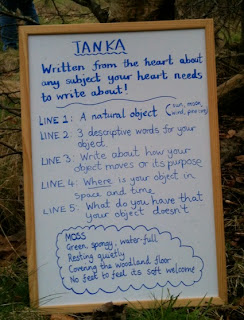 TANKA
Written from the heart about
any subject your heart needs
to write about!
LINE 1: A natural object (sun, moon,
wind, pine cone)
LINE 2: 3 descriptive words for your
object.
LINE 3: Write about how your
object moves or its purpose
LINE 4: Where is your object in
space and time
LINE 5: What do you have that
your object doesn't
MOSS
Green, spongy, water-full
Resting quietly
Covering the woodland floor
No feet to feel its soft welcome